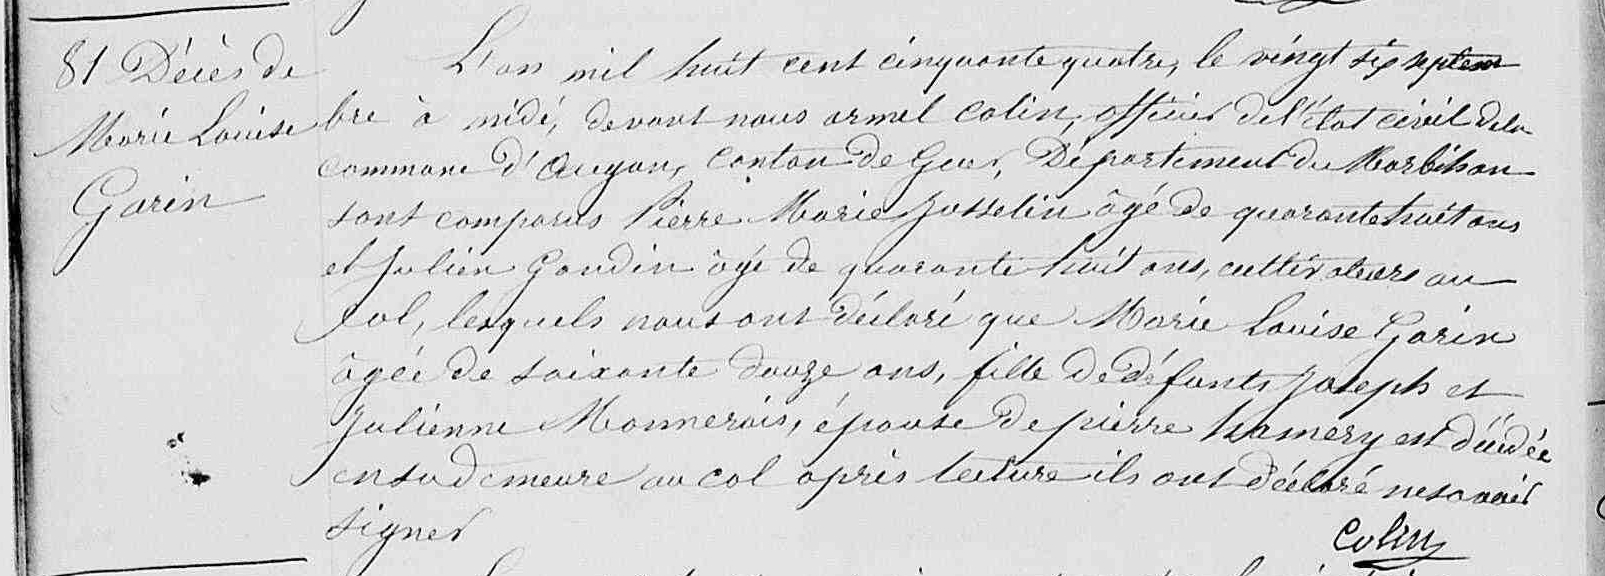 81 Décès de
Marie Louise
Garin
L'an mil huit cent cinquante quatre, le vingt six septem
bre à midi, devant nous armel Colin, officier de l'état civil de la
commune d'Augan, Canton de Guer, Département du Morbihan
sont comparus Pierre Marie Josselin âgé de quarante huit ans
et Julien Gandin âgé de quarante huit ans, cultivateurs au
col, lesquels nous ont déclaré que Marie Louise Garin
âgée de soixante douze ans, fille de défunts Joseph et
Julienne Monnerais, épouse de pierre hamery est décédée
en sa demeure au col après lecture ils ont déclaré ne savoir
signer
Colin